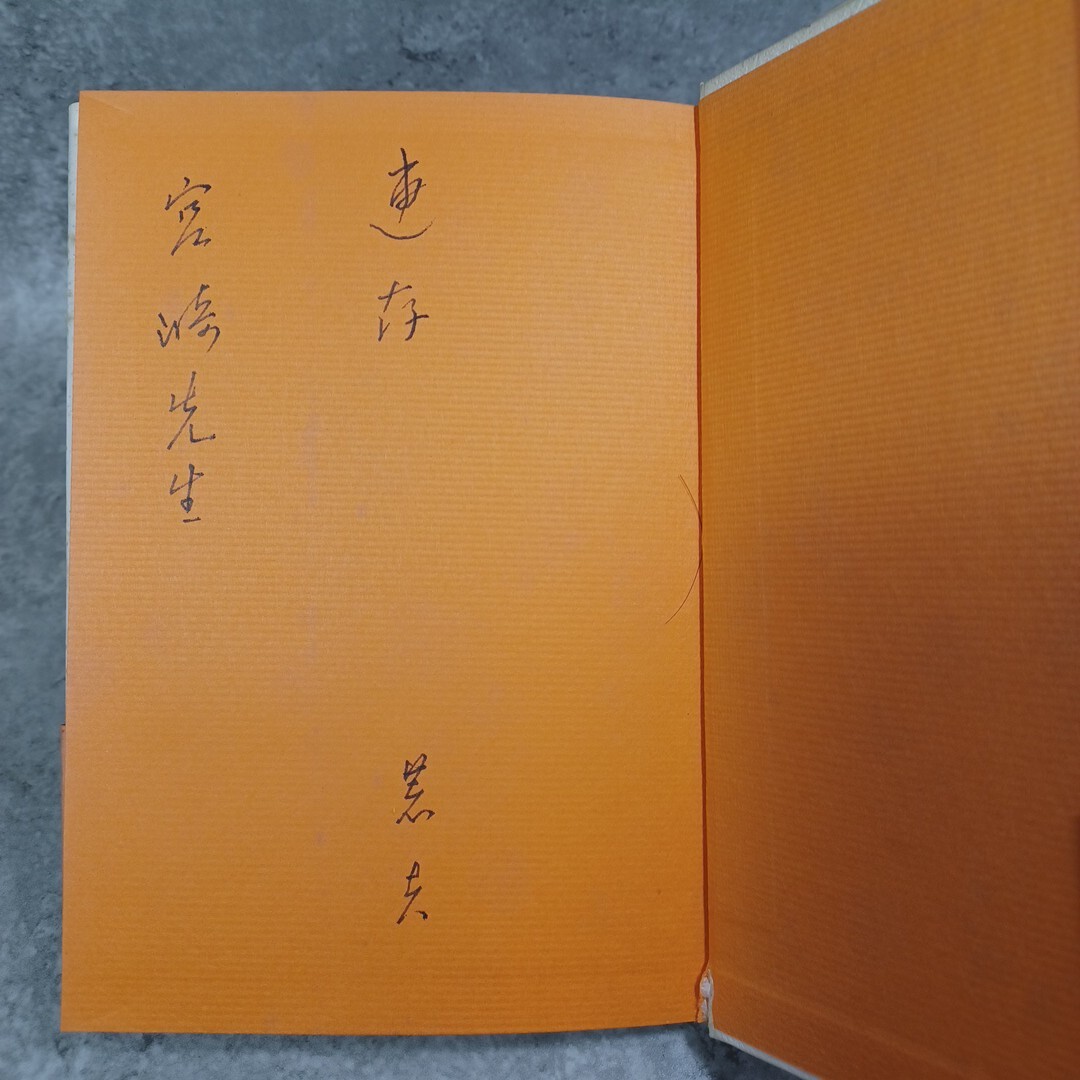 恵存
夫
宮崎先生